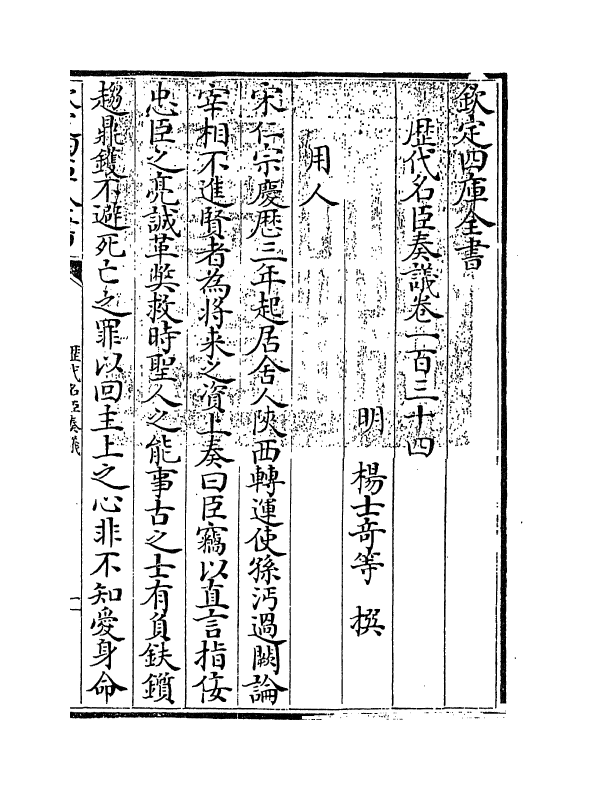 欽定四庫全書
歴代名臣奏議卷一百三十四
明 楊士竒等 撰
用人
宋仁宗慶厯三年起居舍人陜西轉運使孫沔過闕論
宰相不進賢者為將来之資上奏曰臣竊以直言指佞
忠臣之亮誠革獘救時聖人之能事古之士有負鈇鑕
趨鼎鑊不避死亡之罪以回主上之心非不知愛身命
歴代名臣奏議